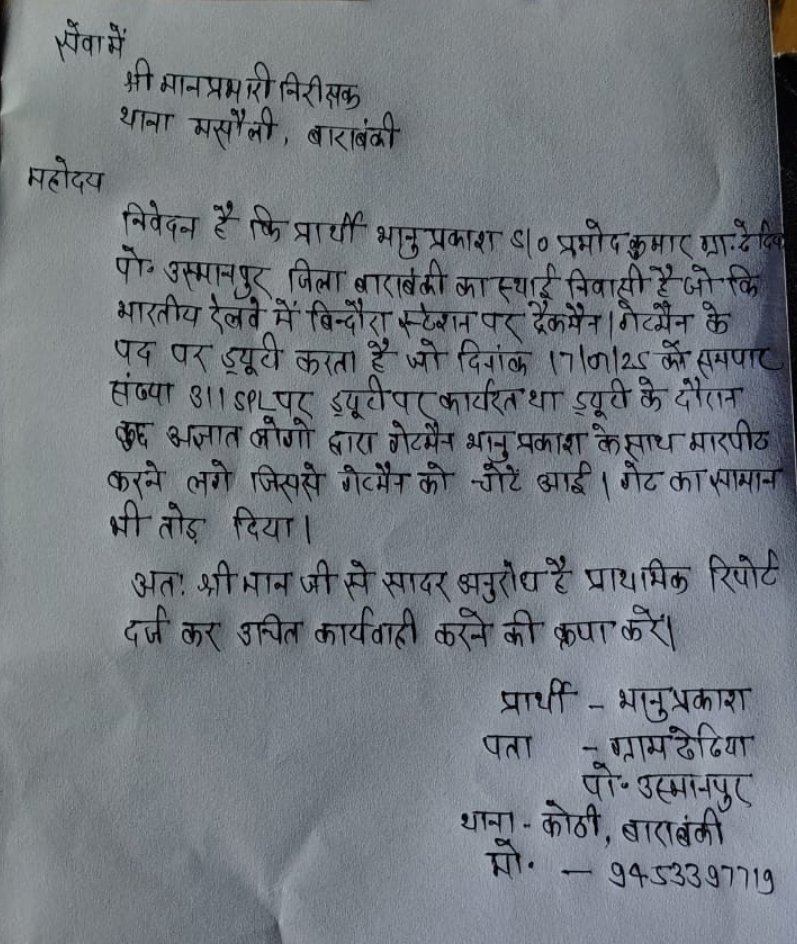 सेवा में
श्री मान प्रभारी निरीक्षक
थाना मसौली, बाराबंकी
महोदय
निवेदन है कि प्रार्थी भानु प्रकाश S/o प्रमोद कुमार ग्रा.
पो॰ उस्मानपुर जिला बाराबंकी का स्थाई निवासी है जो कि
भारतीय रेलवे में बिन्दौरा स्टेशन पर ट्रैकमैन / गेटमैन के
पद पर ड्यूटी करता है जो दिनांक 17/01/25 को समपार
संख्या 311 SPL पर ड्यूटी पर कार्यरत था ड्यूटी के दौरान
कुछ अज्ञात लोगो द्वारा गेटमैन भानु प्रकाश के साथ मारपीट
करने लगे जिससे गेटमैन को चोटें आई । गेट का सामान
भी तोड़ दिया।
अत: श्री मान जी से सादर अनुरोध है प्राथमिक रिपोर्ट
दर्ज कर उचित कार्यवाही करने की कृपा करें।
प्रार्थी - भानु प्रकाश
पता - ग्राम ढेढिया
पो॰ उस्मानपुर
थाना - कोठी, बाराबंकी
मो. - 9453397719